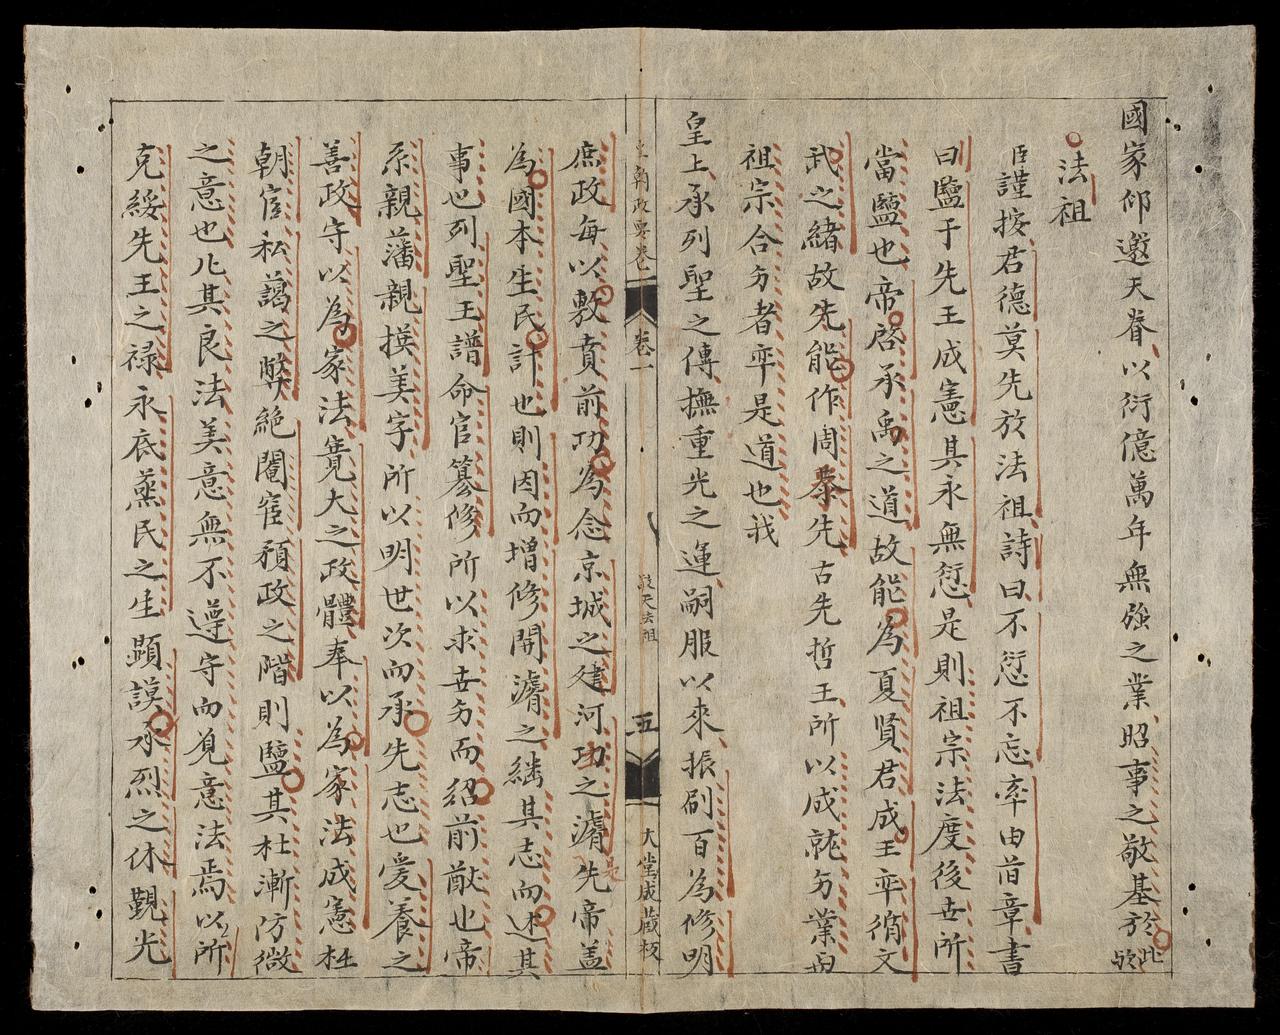 國家仰邀天眷以衍億萬年無強之業昭事之敬基於此欤
法祖
臣謹按君德莫先於法祖詩曰不愆不忘率由旧章書
曰鑒于先王成憲其永無愆是則祖宗法度後世所
當鑒也帝啓承禹之道故能為夏賢君成王率循文
武之緒故先能作周恭先古先哲王所以成就功業而
祖宗合功者率是道也我
皇上承列聖之傳撫重光之運嗣服以來振刷百為修明
皇朝政要卷一
卷一
敬天法祖
五
大堂成藏板
庶政每以敷賁前功為念京城之建河功之濬先帝盖
為國本生民計也則因而增修開濬之継其志而述其
事也列聖王譜命官纂修所以求世功而紹前猷也帝
系親藩親撰美字所以明世次而承先志也爱養之
善政守以為家法寬大之政體奉以為家法成憲杜
朝宦私謁之弊絶閹宦預政之階則鹽其杜漸防微
之意也凡其良法美意無不遵守而見意法焉以所
克綏先王之禄永底蒸民之生顕謨承烈之休覲光